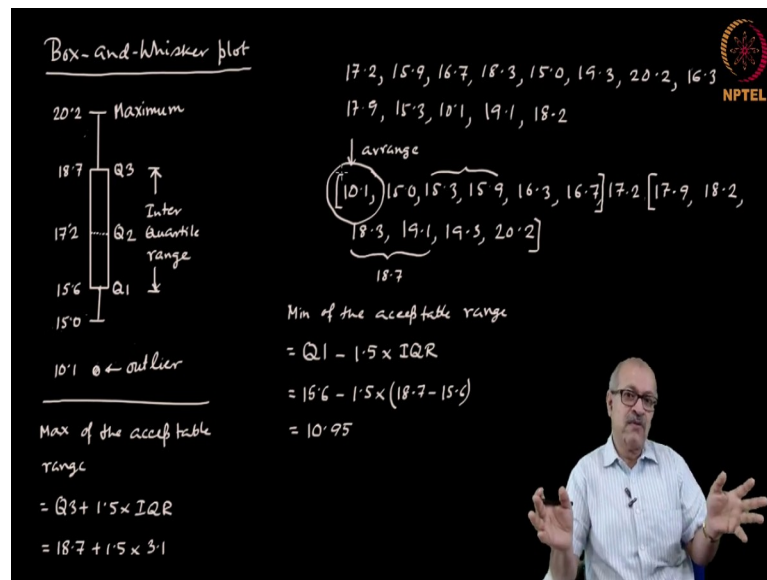 Box-and-Whisker plot
20.2 Maximum
18.7 Q3
Inter
17.2 Q2 Quartile
range
15.6 Q1
15.0
10.1 ← outlier
Max of the acceptable
range
= Q3 + 1.5 × IQR
= 18.7 + 1.5 × 3.1
17.2, 15.9, 16.7, 18.3, 15.0, 19.3, 20.2, 16.3
17.9, 15.3, 10.1, 19.1, 18.2
↓ arrange
[10.1, 15.0, 15.3, 15.9, 16.3, 16.7] 17.2 [17.9, 18.2,
18.3, 19.1, 19.3, 20.2]
18.7
Min of the acceptable range
= Q1 - 1.5 × IQR
= 15.6 - 1.5 × (18.7 - 15.6)
= 10.95
NPTEL